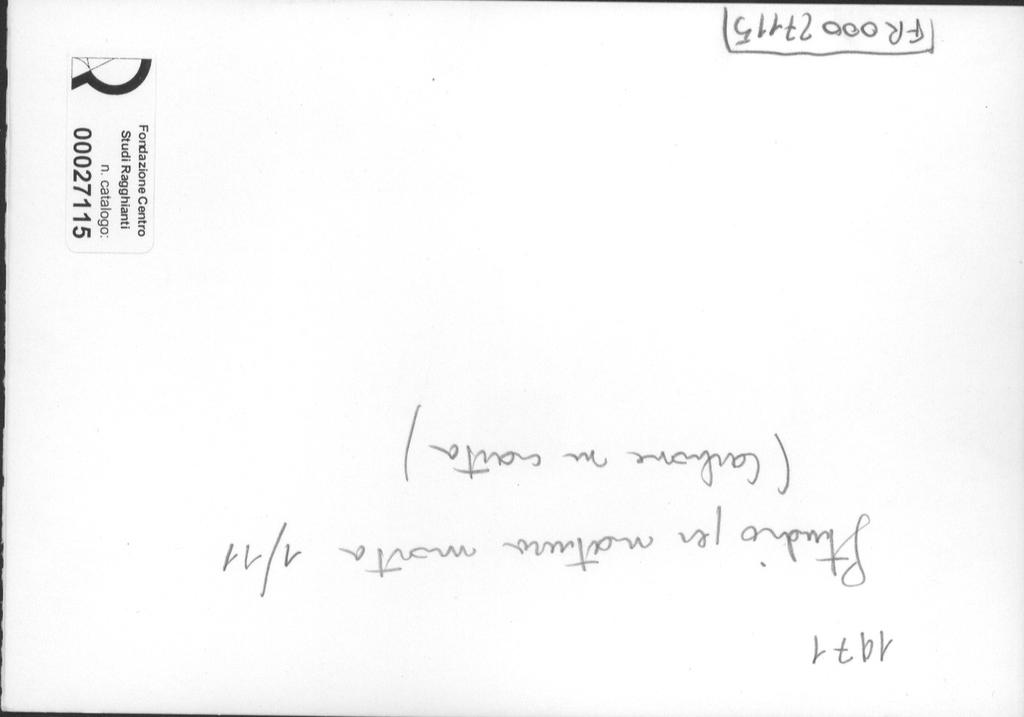 1971
Studio per natura morta 1/11
(Carbone su carta)
FR 00027115
Fondazione Centro
Studi Ragghianti
n. catalogo:
00027115